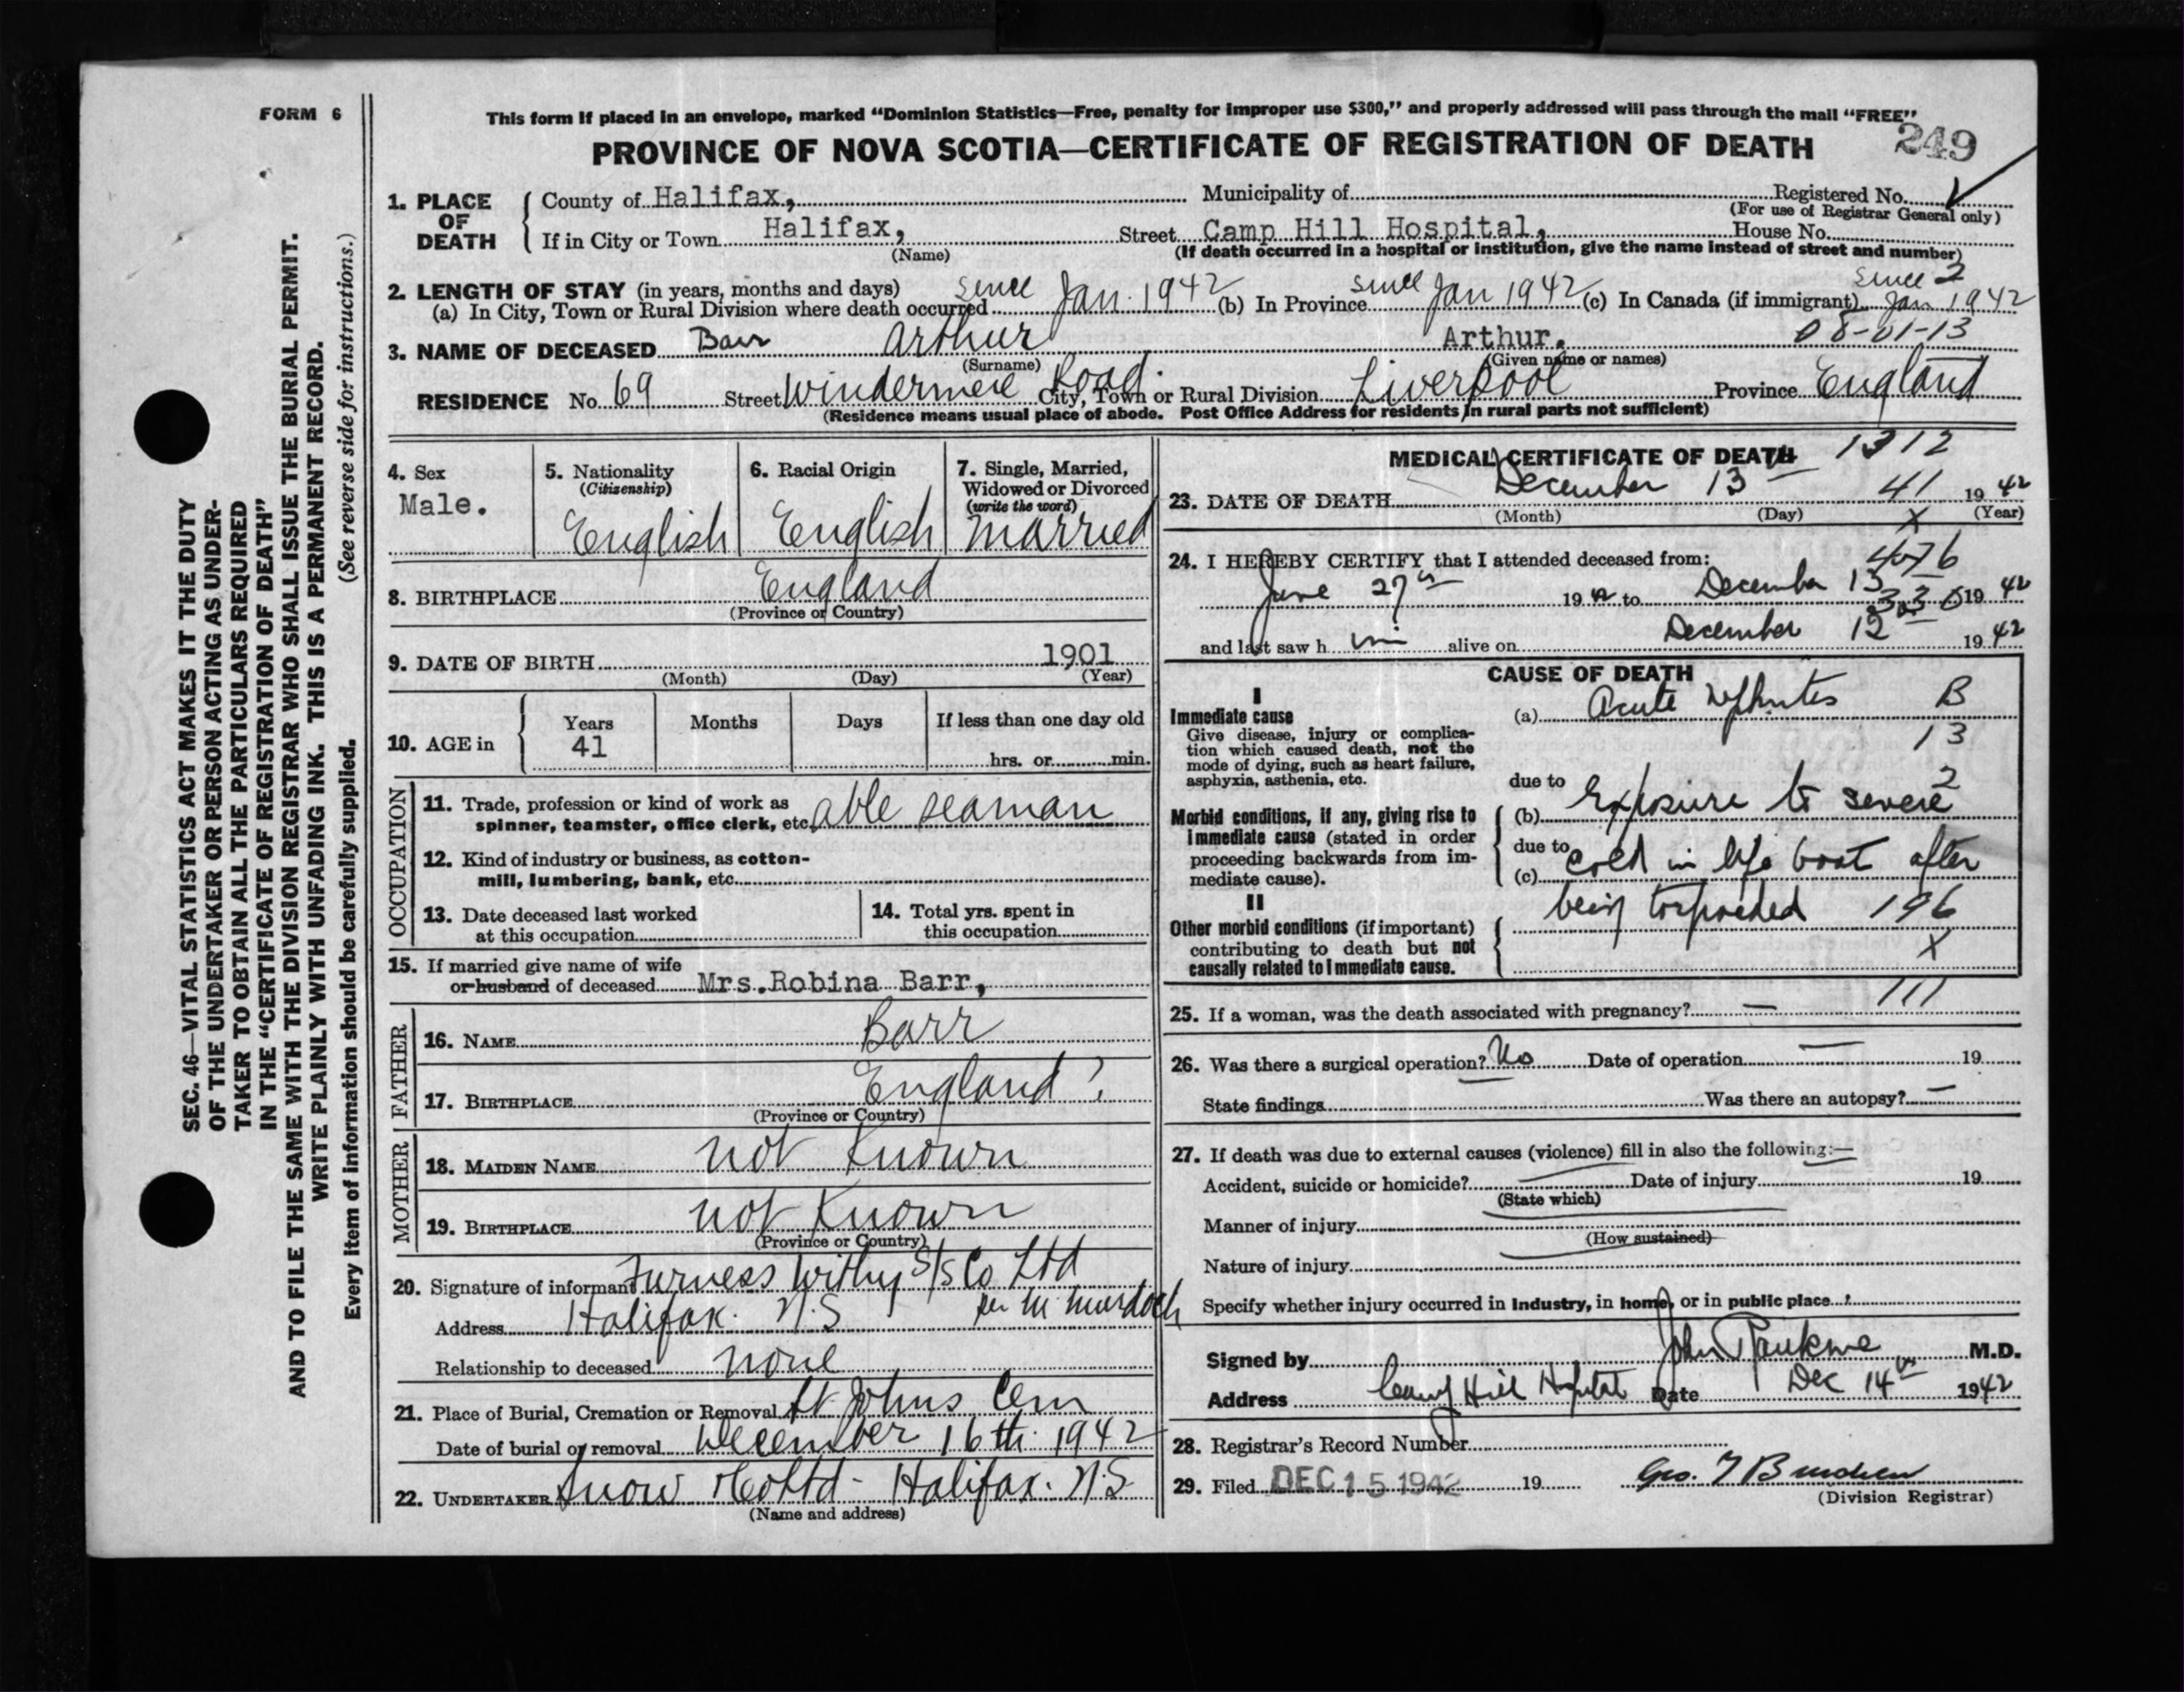 FORM 6
This form if placed in an envelope, marked “Dominion Statistics—Free, penalty for improper use $300,” and properly addressed will pass through the mail “FREE”
PROVINCE OF NOVA SCOTIA—CERTIFICATE OF REGISTRATION OF DEATH 249
1. PLACE OF DEATH
County of Halifax, Municipality of Registered No.
(For use of Registrar General only)
If in City or Town Halifax, Street Camp Hill Hospital, House No.
(Name) (If death occurred in a hospital or institution, give the name instead of street and number)
2. LENGTH OF STAY (in years, months and days)
(a) In City, Town or Rural Division where death occurred since Jan. 1942 (b) In Province since Jan 1942 (c) In Canada (if immigrant) since 2 Jan 1942
3. NAME OF DECEASED Barr Arthur Arthur. 08-01-13
(Surname) (Given name or names)
RESIDENCE No. 69 Street Windermere Road. City, Town or Rural Division Liverpool Province England
(Residence means usual place of abode. Post Office Address for residents in rural parts not sufficient)
4. Sex
Male.
5. Nationality
(Citizenship)
English
6. Racial Origin
English
7. Single, Married,
Widowed or Divorced
(write the word)
Married
8. BIRTHPLACE England
(Province or Country)
9. DATE OF BIRTH 1901
(Month) (Day) (Year)
10. AGE in Years Months Days If less than one day old
41 hrs. or min.
OCCUPATION
11. Trade, profession or kind of work as
spinner, teamster, office clerk, etc. able seaman
12. Kind of industry or business, as cotton-
mill, lumbering, bank, etc.
13. Date deceased last worked
at this occupation
14. Total yrs. spent in
this occupation
15. If married give name of wife
or husband of deceased Mrs. Robina Barr,
FATHER
16. NAME Barr
17. BIRTHPLACE England ?
(Province or Country)
MOTHER
18. MAIDEN NAME not Known
19. BIRTHPLACE not Known
(Province or Country)
20. Signature of informant Furness Withy S/S Co Ltd
Address Halifax. N.S per M Murdoch
Relationship to deceased none
21. Place of Burial, Cremation or Removal St Johns Cem
Date of burial or removal December 16th. 1942
22. UNDERTAKER Snow & Co Ltd - Halifax. N.S
(Name and address)
MEDICAL CERTIFICATE OF DEATH 1312
23. DATE OF DEATH December 13th 41 19 42
(Month) (Day) X (Year)
24. I HEREBY CERTIFY that I attended deceased from: 4076
June 27th 19 42 to December 13 19 42
and last saw h im alive on December 12 19 42
CAUSE OF DEATH
I
Immediate cause
Give disease, injury or complica-
tion which caused death, not the
mode of dying, such as heart failure,
asphyxia, asthenia, etc.
(a) Acute Nephritis B
13
due to 2
Morbid conditions, if any, giving rise to
immediate cause (stated in order
proceeding backwards from im-
mediate cause).
(b) Exposure to severe
due to
(c) cold in life boat after
being torpedoed 196
X
II
Other morbid conditions (if important)
contributing to death but not
causally related to immediate cause.
25. If a woman, was the death associated with pregnancy? — 111
26. Was there a surgical operation? No Date of operation — 19
State findings Was there an autopsy? —
27. If death was due to external causes (violence) fill in also the following:—
Accident, suicide or homicide? Date of injury 19
(State which)
Manner of injury
(How sustained)
Nature of injury
Specify whether injury occurred in industry, in home, or in public place
Signed by John M.D.
Address Camp Hill Hospital Date Dec 14th 1942
28. Registrar's Record Number
29. Filed DEC 15 1942 19 Geo.
(Division Registrar)
SEC. 46—VITAL STATISTICS ACT MAKES IT THE DUTY
OF THE UNDERTAKER OR PERSON ACTING AS UNDER-
TAKER TO OBTAIN ALL THE PARTICULARS REQUIRED
IN THE “CERTIFICATE OF REGISTRATION OF DEATH”
AND TO FILE THE SAME WITH THE DIVISION REGISTRAR WHO SHALL ISSUE THE BURIAL PERMIT.
WRITE PLAINLY WITH UNFADING INK. THIS IS A PERMANENT RECORD.
Every item of information should be carefully supplied. (See reverse side for instructions.)